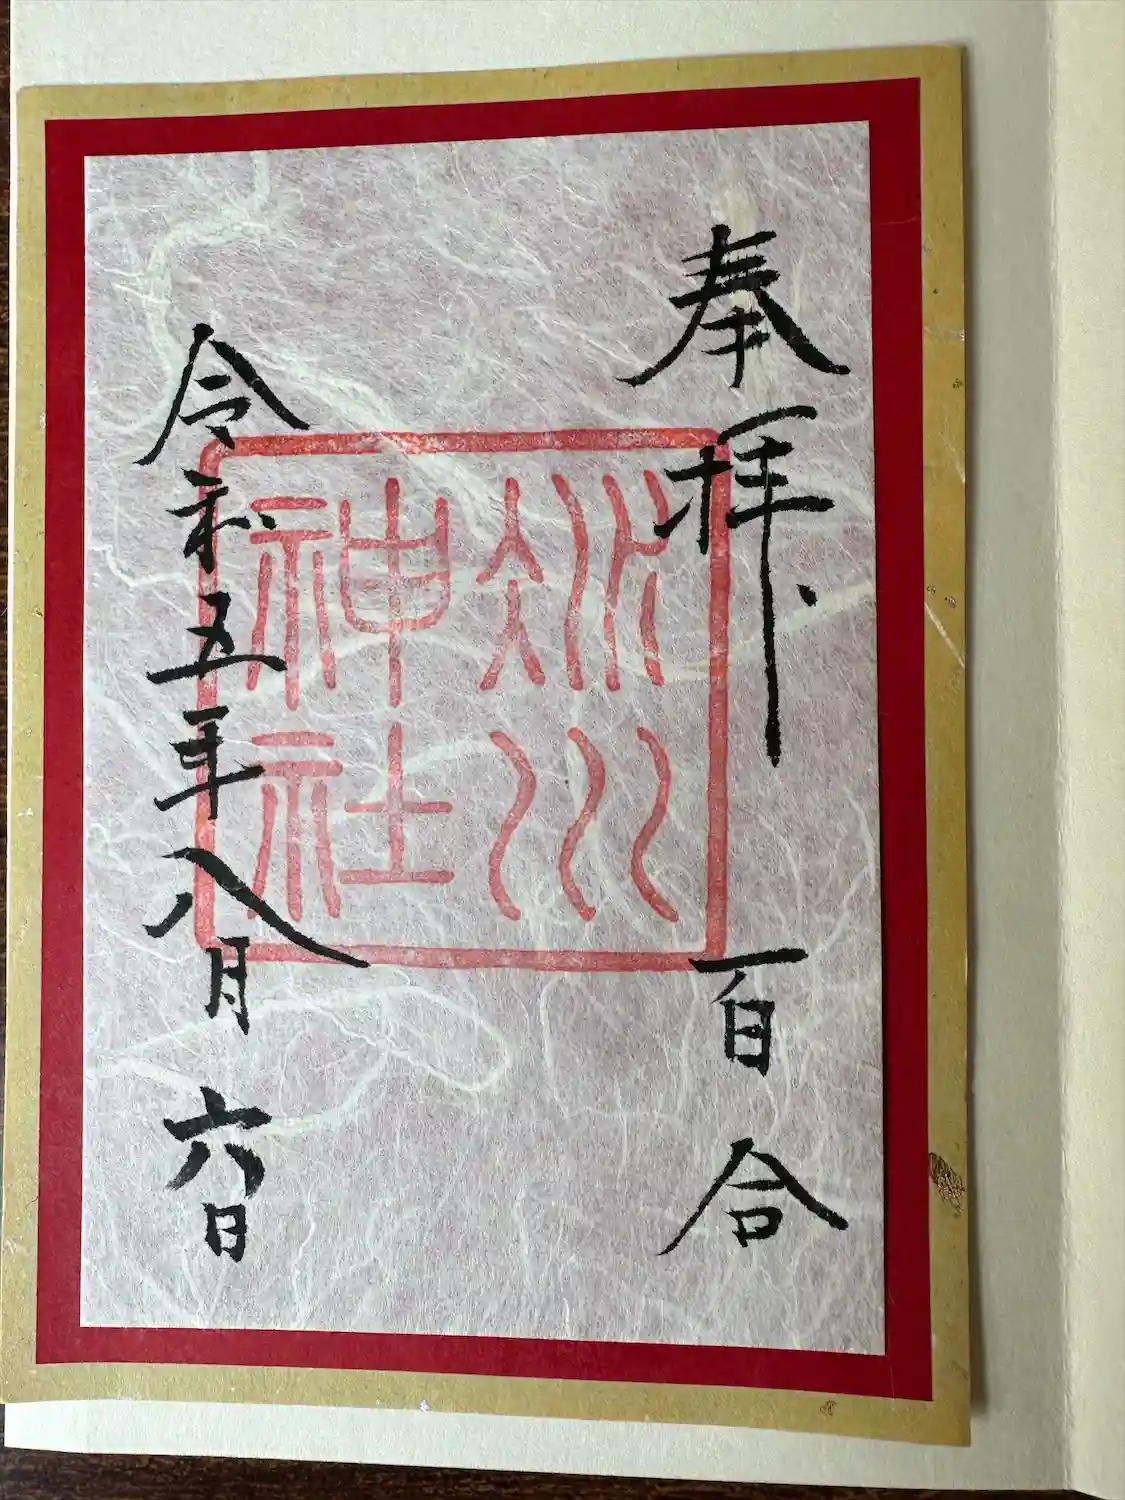 奉拝 百合
氷川
神社
令和五年八月六日